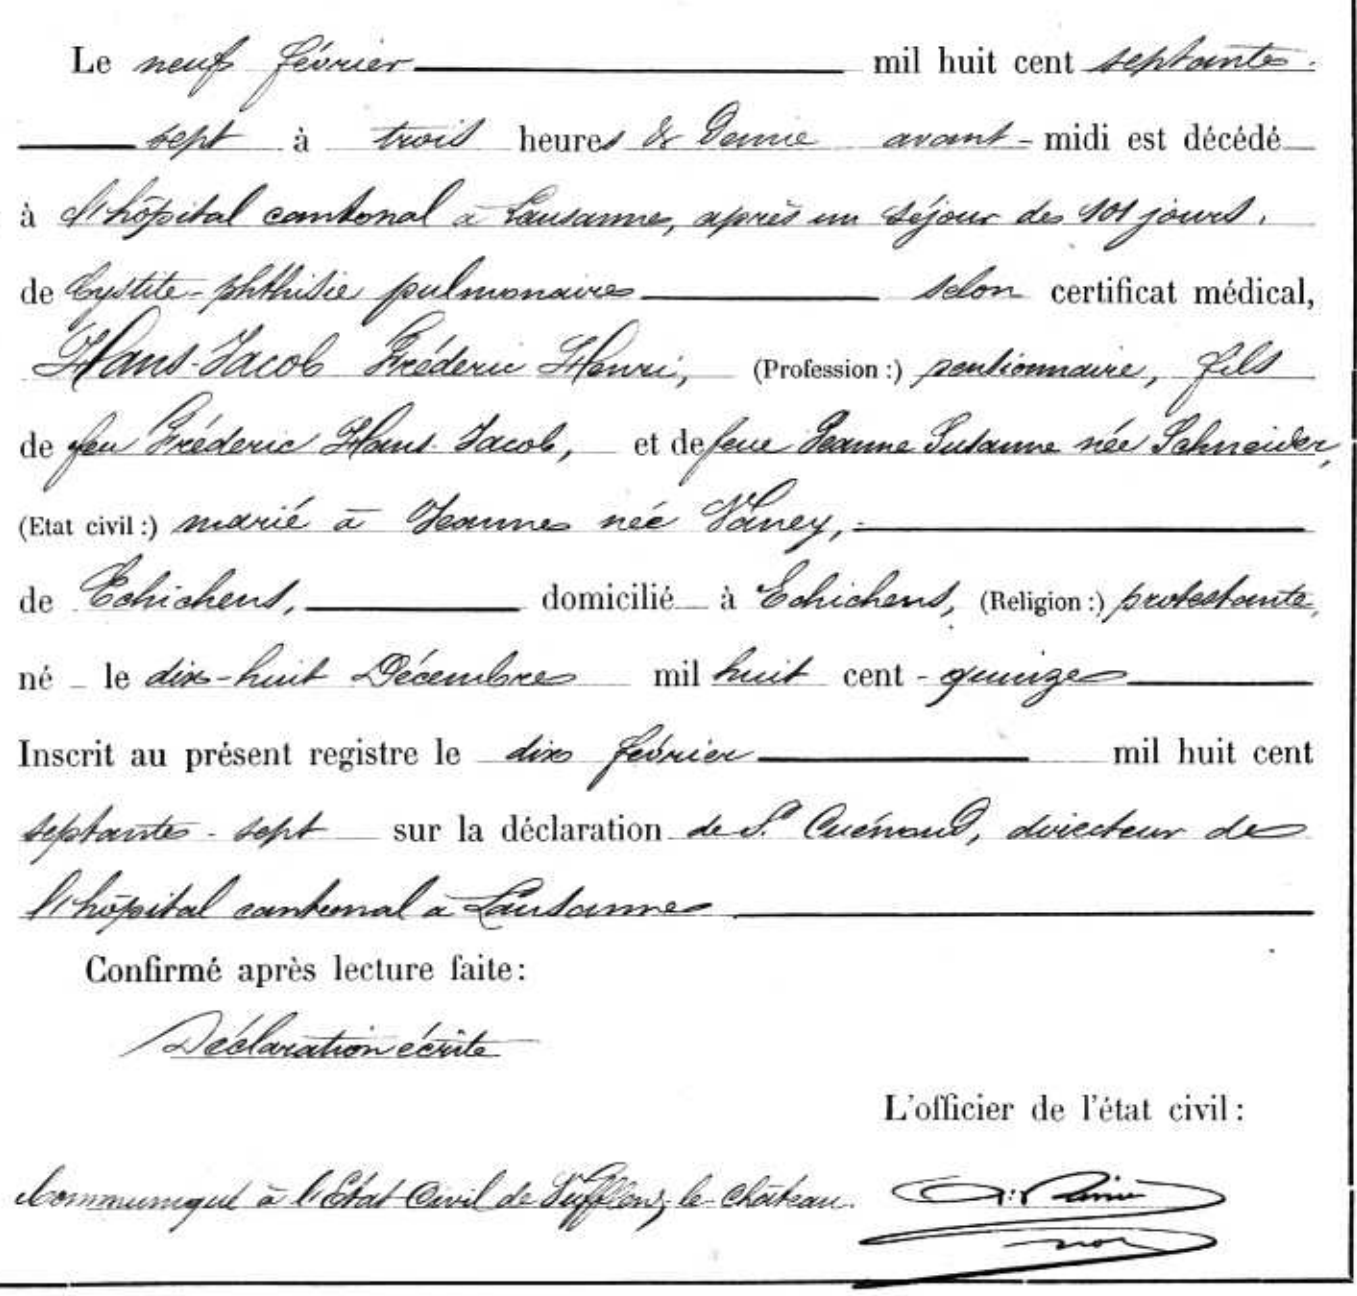 Le neuf février mil huit cent septante-
sept à trois heures & demie avant-midi est décédé
à l'hôpital cantonal à Lausanne, après un séjour de 101 jours,
de Cystite-phthisie pulmonaire selon certificat médical,
Hans-Jacob Fréderic Henri, (Profession :) pensionnaire, fils
de feu Fréderic Hans-Jacob, et de feue Jeanne Susanne née Schneider,
(Etat civil :) marié à Jeanne née Vaney,
de Echichens, domicilié à Echichens, (Religion :) protestante,
né le dix-huit Décembre mil huit cent-quinze
Inscrit au présent registre le dix février mil huit cent
septante-sept sur la déclaration de S. Cuénoud, directeur de
l'hôpital cantonal à Lausanne
Confirmé après lecture faite :
Déclaration écrite
L'officier de l'état civil :
Communiqué à l'Etat Civil de Vufflens-le-Château.